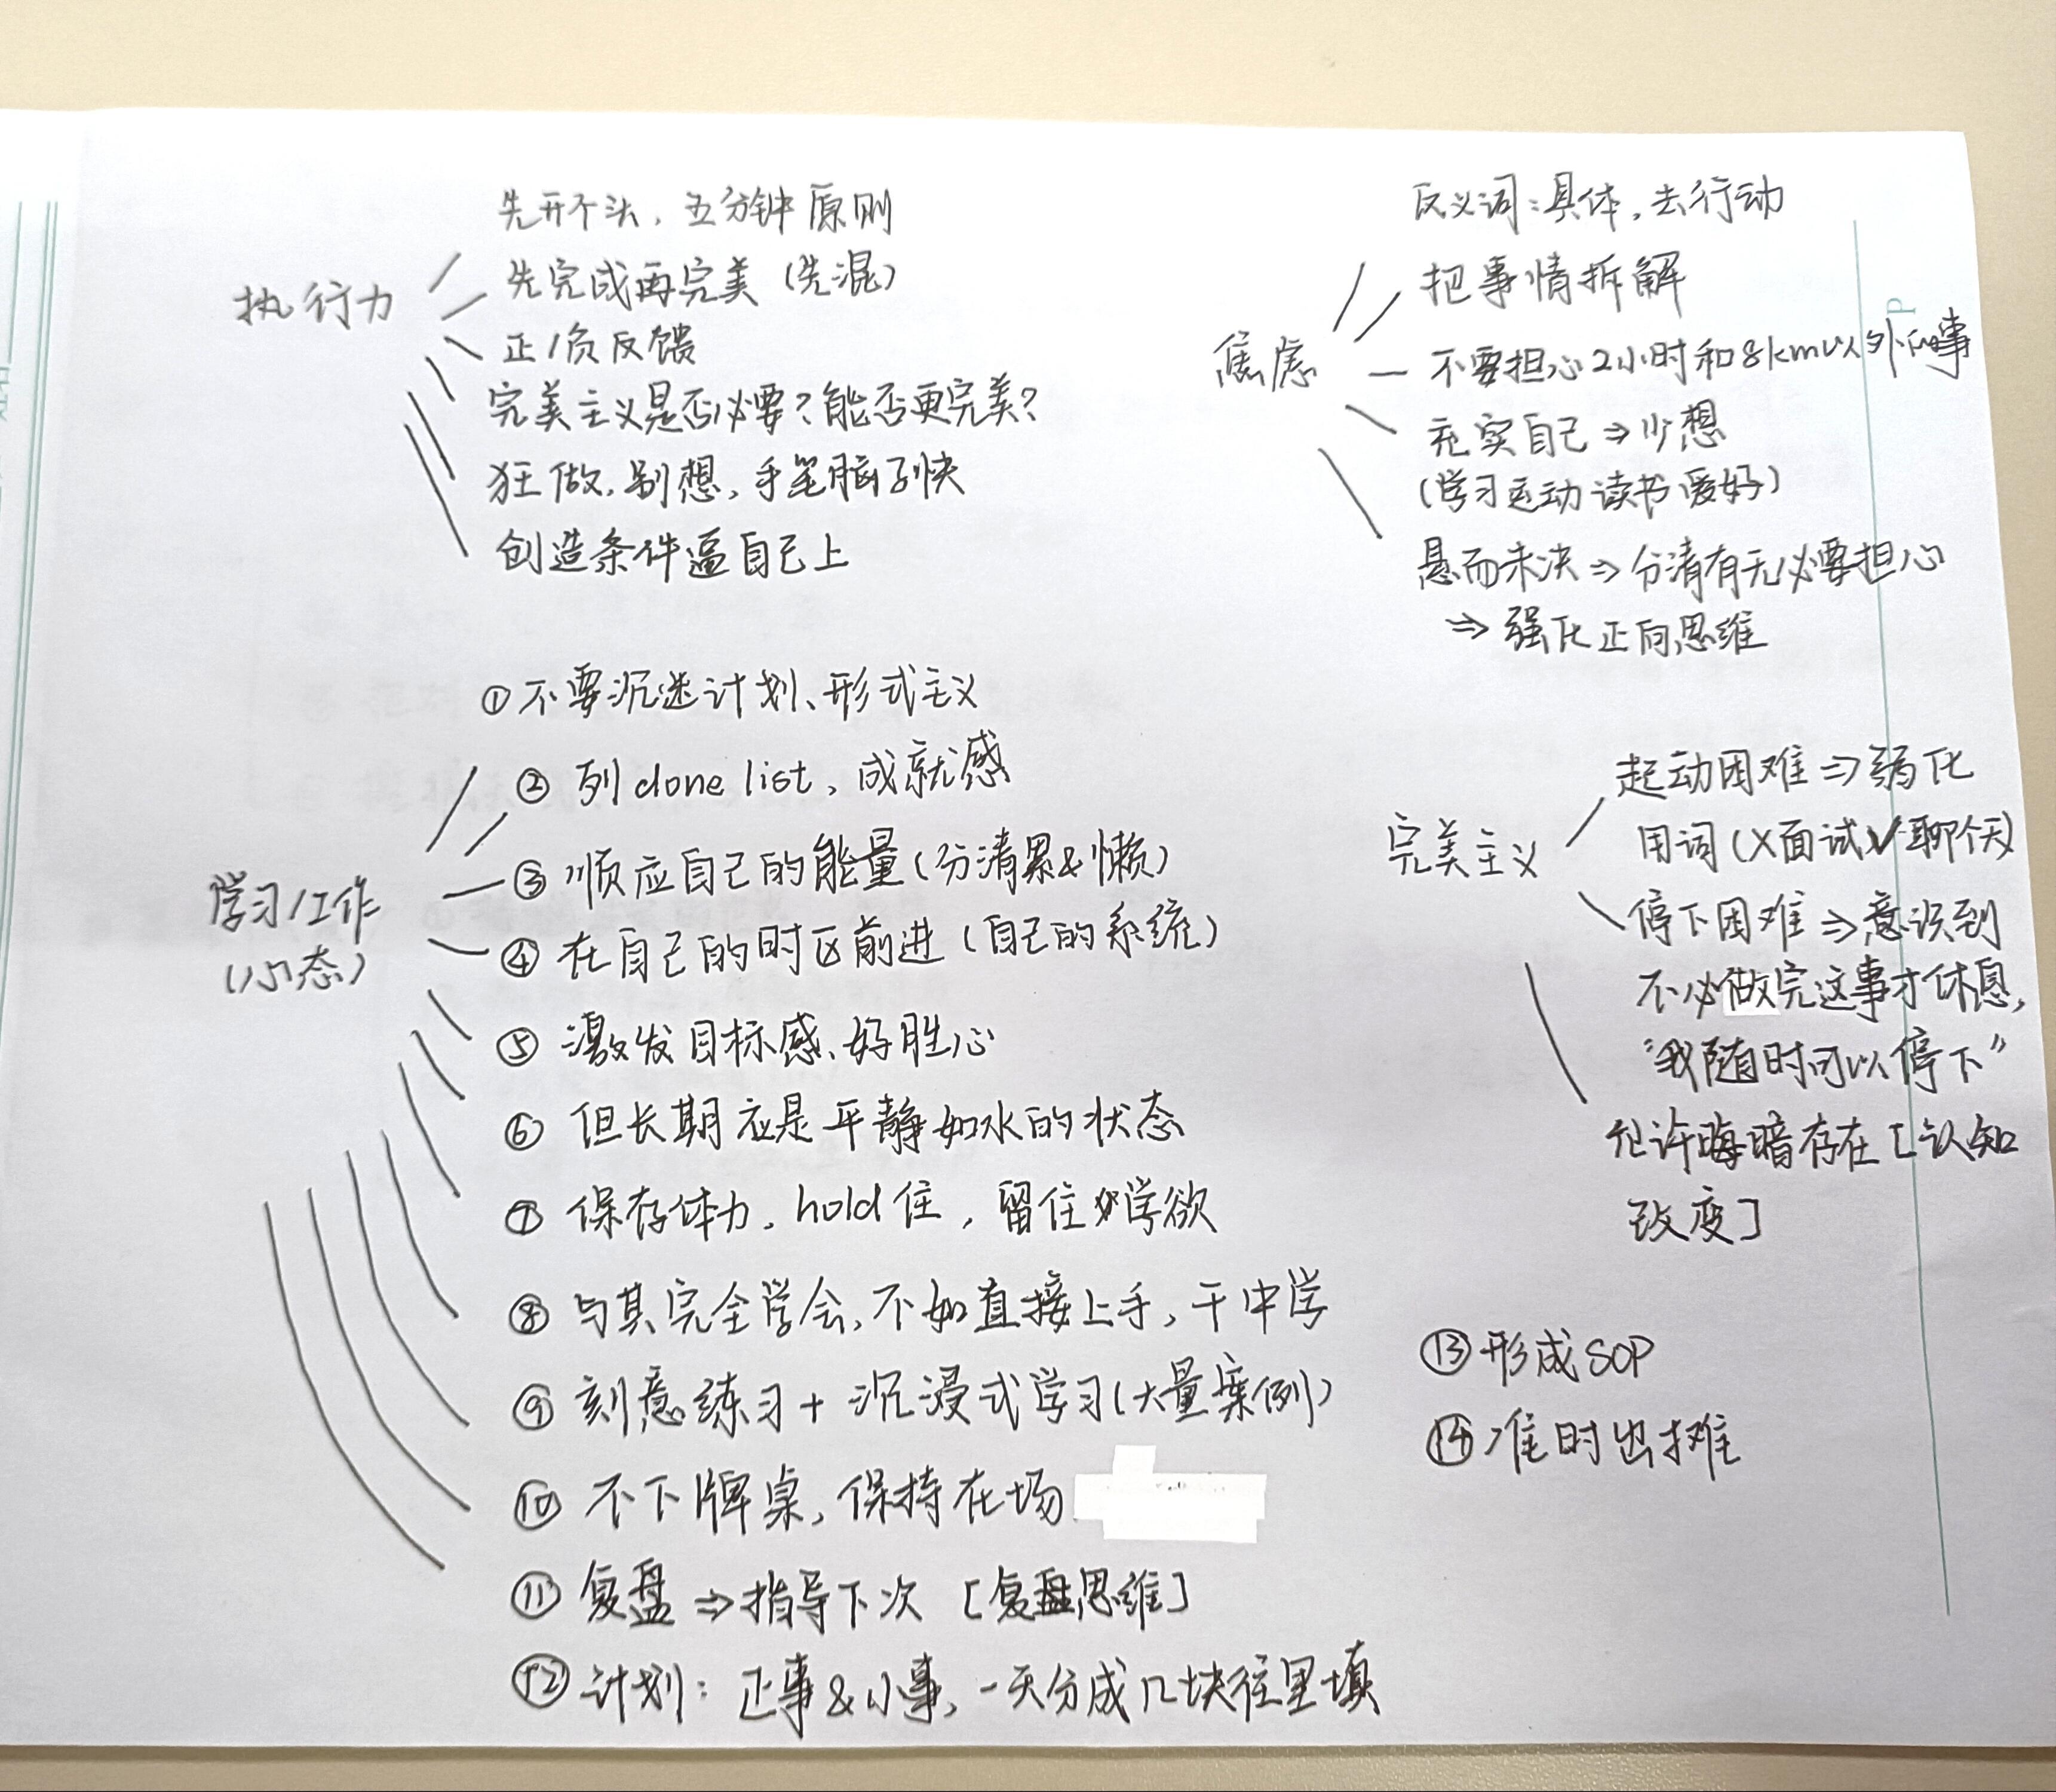 执行力
先开个头，五分钟原则
先完成再完美（先混）
正/负反馈
完美主义是否必要？能否更完美？
狂做，别想，手笔脑子快
创造条件逼自己上
焦虑
反义词：具体，去行动
把事情拆解
不要担心2小时和8km以外的事
充实自己⇒少想
（学习运动读书爱好）
悬而未决⇒分清有无必要担心
⇒强化正向思维
学习/工作
（心态）
①不要沉迷计划、形式主义
②列done list，成就感
③顺应自己的能量（分清累&懒）
④在自己的时区前进（自己的系统）
⑤激发目标感、好胜心
⑥但长期应是平静如水的状态
⑦保存体力，hold住，留住学欲
⑧与其完全学会，不如直接上手，干中学
⑨刻意练习+沉浸式学习（大量案例）
⑩不下牌桌，保持在场
⑪复盘⇒指导下次［复盘思维］
⑫计划：正事&小事，一天分成几块往里填
⑬形成SOP
⑭准时出摊
完美主义
起动困难⇒弱化
用词（×面试√聊天）
停下困难⇒意识到
不必做完这事才休息，
“我随时可以停下”
允许晦暗存在［认知
改变］
P